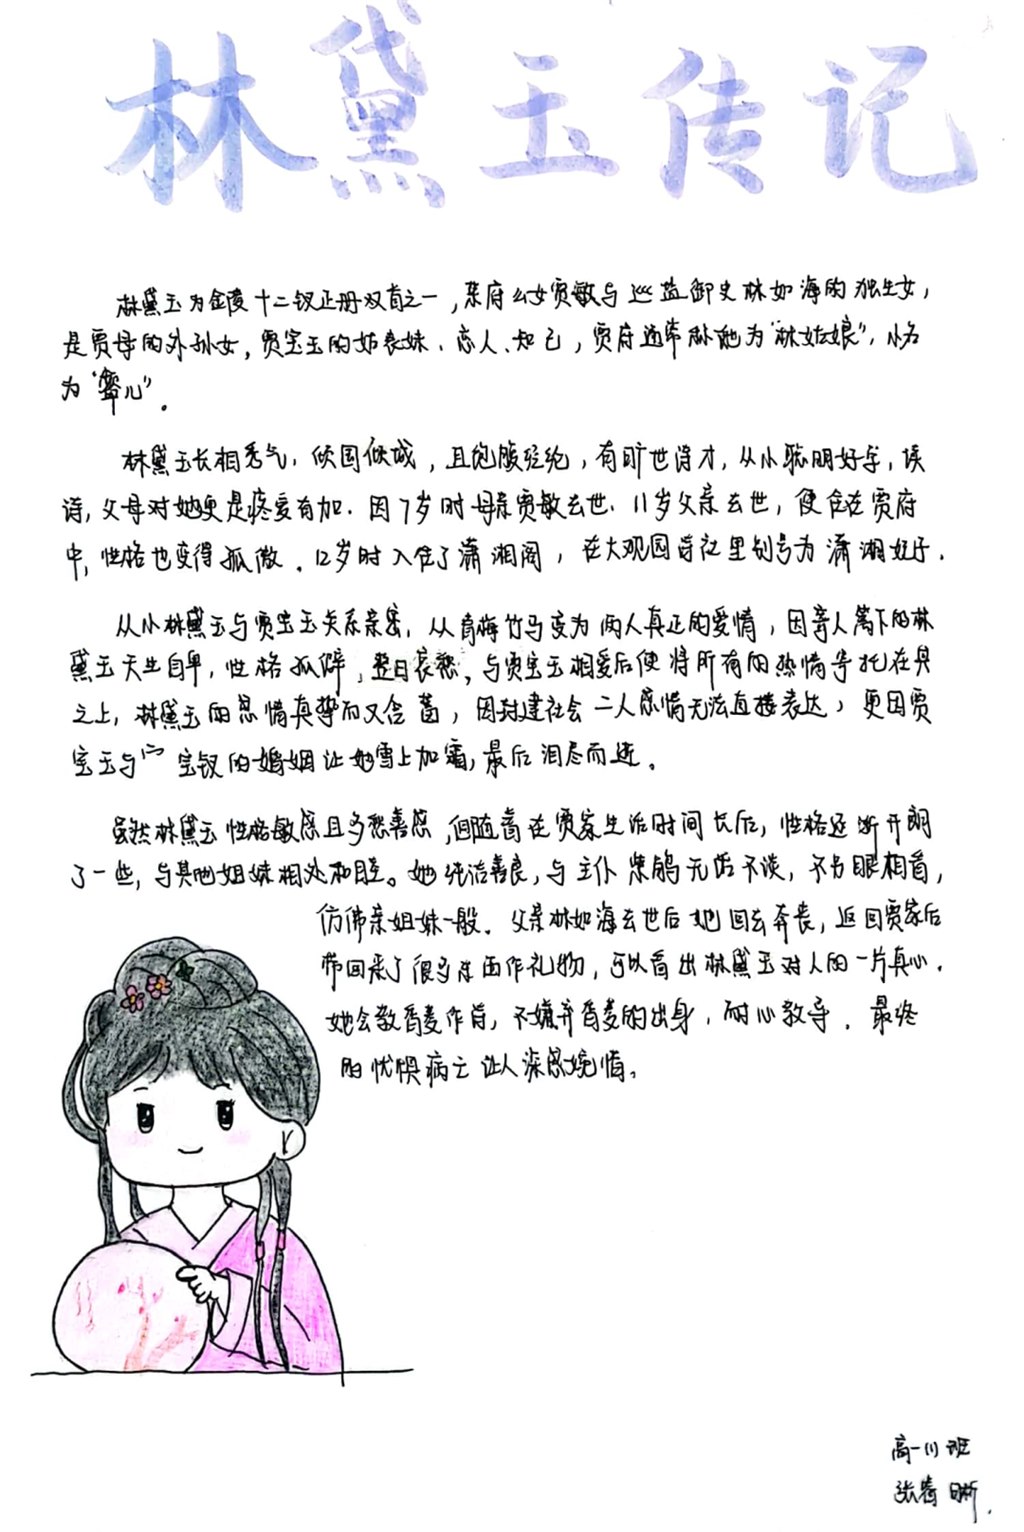 林黛玉传记
林黛玉为金陵十二钗正册双首之一,荣府幺女贾敏与巡盐御史林如海的独生女,
是贾母的外孙女,贾宝玉的姑表妹、恋人、知己,贾府通常称她为“林姑娘”,小名
为“颦儿”。
林黛玉长相秀气,倾国倾城,且饱腹经纶,有旷世诗才,从小聪明好学,读
诗,父母对她更是疼爱有加.因7岁时母亲贾敏去世.11岁父亲去世,便住在贾府
中,性格也变得孤傲.12岁时入住了潇湘阁,在大观园诗社里别号为潇湘妃子.
从小林黛玉与贾宝玉关系亲密,从青梅竹马变为两人真正的爱情,因寄人篱下的林
黛玉天生自卑,性格孤僻,整日哀愁,与贾宝玉相爱后便将所有的热情寄托在其
之上,林黛玉的感情真挚而又含蓄,因封建社会二人感情无法直接表达,更因贾
宝玉与宝钗的婚姻让她雪上加霜,最后泪尽而逝。
虽然林黛玉性格敏感且多愁善感,但随着在贾家生活时间长后,性格逐渐开朗
了一些,与其他姐妹相处和睦。她纯洁善良,与主仆紫鹃无话不谈,不另眼相看,
仿佛亲姐妹一般.父亲林如海去世后她回去奔丧,返回贾家后
带回来了很多东西作礼物,可以看出林黛玉对人的一片真心.
她会教香菱作诗,不嫌弃香菱的出身,耐心教导.最终
的忧惧病亡让人深感惋惜。
高一(1)班